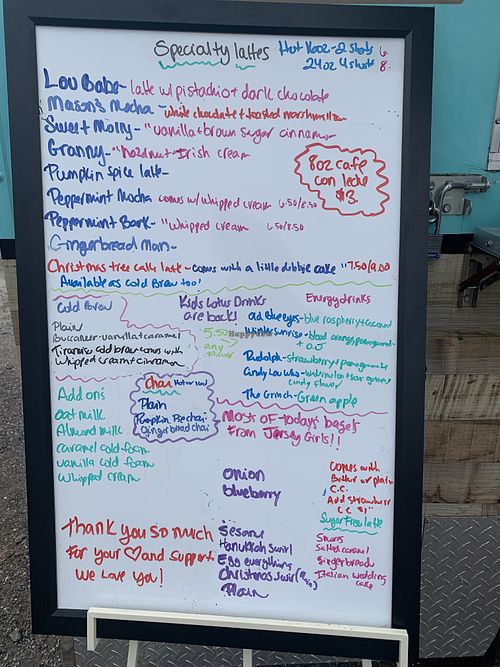 Specialty lattes
Hot 16oz-2 shots 6.
24oz 4 shots 8.
Lou Babe- latte w/ pistachio + dark chocolate
Mason's Mocha - white chocolate + toasted marshmallow
Sweet Molly- "vanilla + brown sugar cinnamon
Granny- "hazelnut + Irish cream
Pumpkin spice latte-
8oz cafe
con leche
$3
Peppermint Mocha comes w/ whipped cream 6.50/8.50
Peppermint Bark- "whipped cream 6.50/8.50
Gingerbread Man-
Christmas tree cake latte- comes with a little debbie cake "7.50/9.00
Available as cold Brew too!
Cold Brew
Plain
Buccaneer-vanilla + caramel
Tiramisu cold brew comes with
Whipped cream + cinnamon
Kids Lotus Drinks
are back!
5.50
any
Flavor
HappyCow
Energy drinks
Old Blue eyes-blue raspberry + coconut
Winter sunrise- blood orange, pomegranate
+ O.J
Rudolph-strawberry + pomegranate
Cindy Lou Who-
candy flavor
The Grinch-Green apple
Add ons
Oat milk
Almond milk
caramel cold foam
vanilla cold foam
whipped cream
Chai Hot or iced
Plain
Pumpkin Pie chai
Gingerbread chai
Most of today's bagels
From Jersey Girls!!
onion
blueberry
Sesame
Hanukkah swirl
Egg everything
Christmas swirl
Plain
comes with
Butter or plain
C.C.
Add strawberry
C C $1"
Sugar Free latte
Smores
Salted caramel
gingerbread
Italian wedding
cake
Thank you so much
For your and support
We love you!